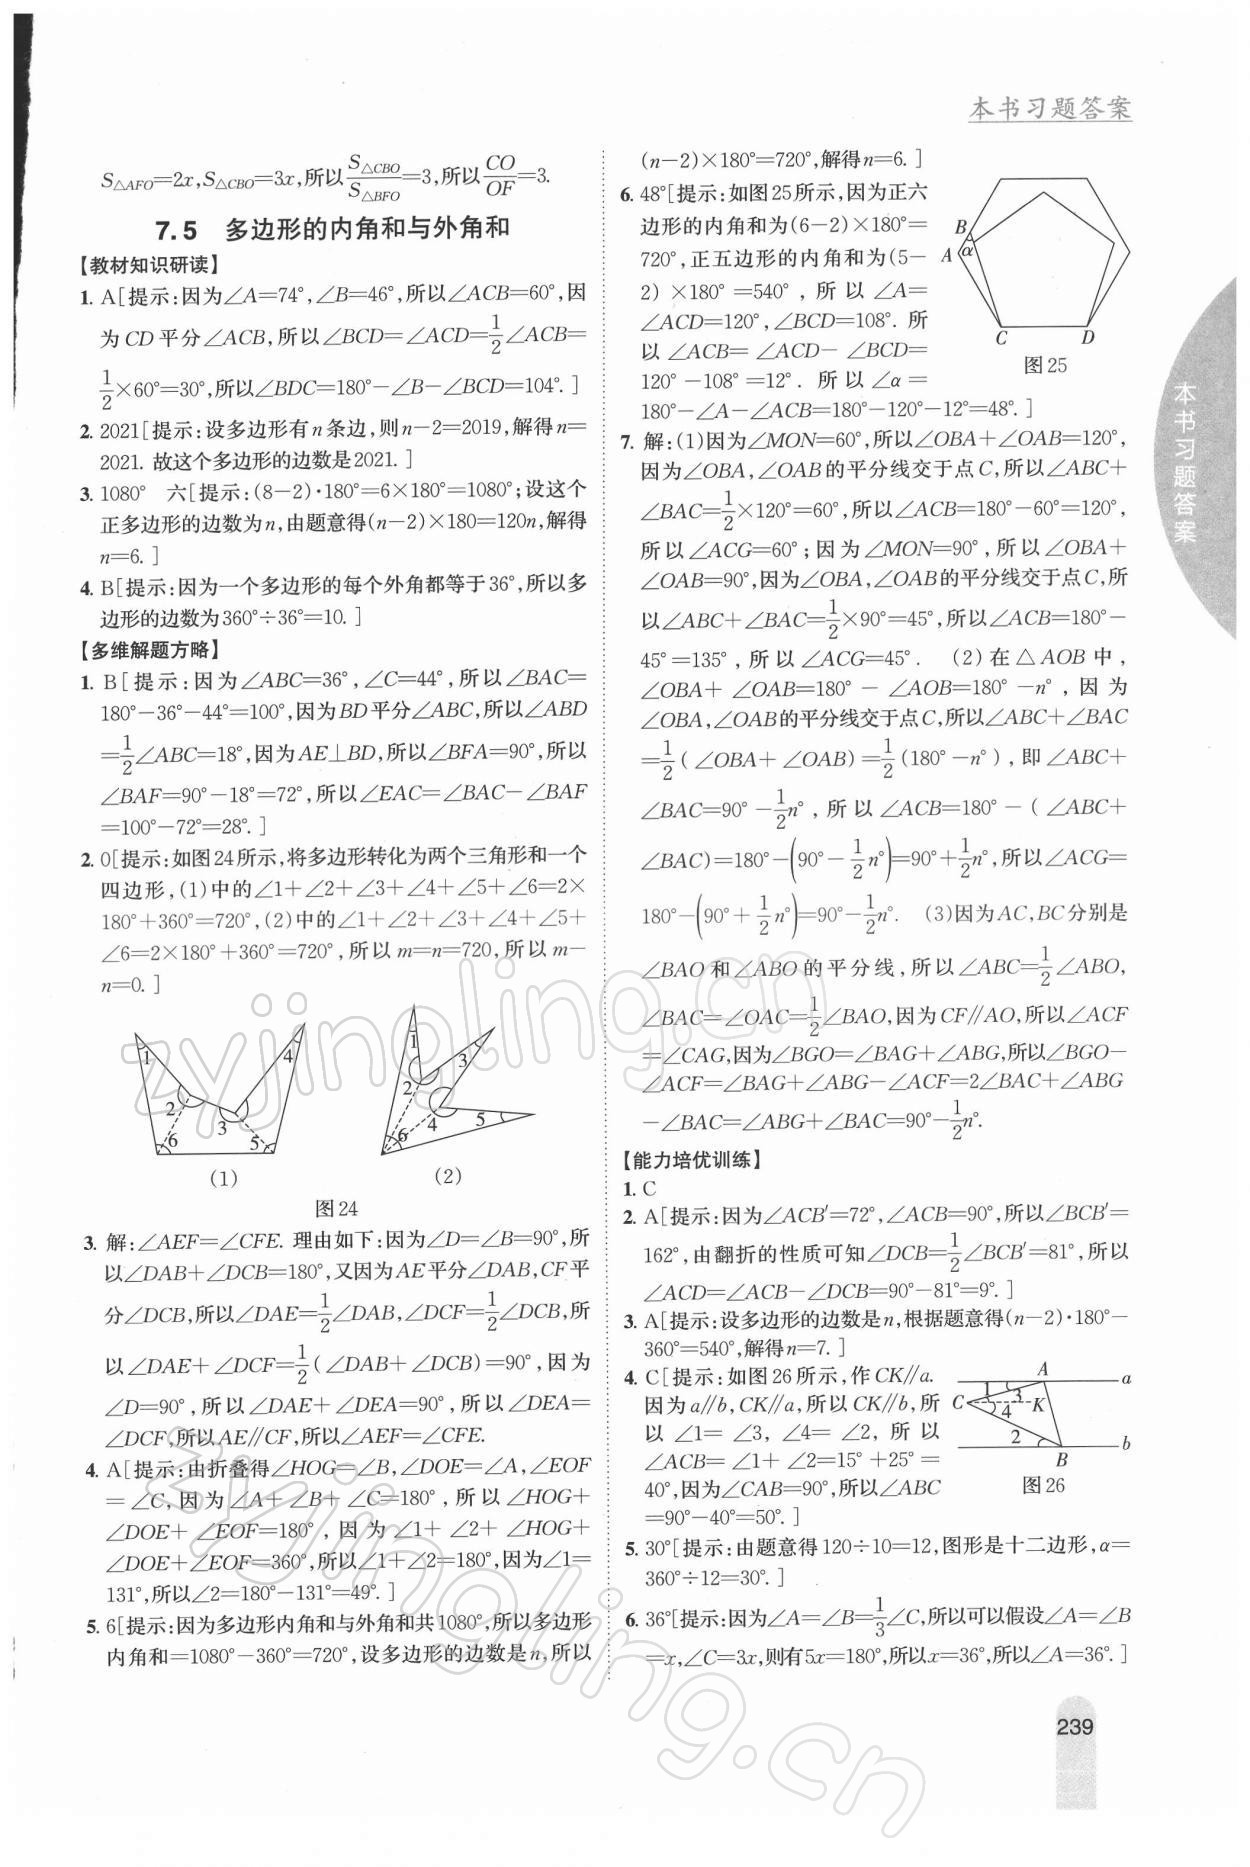 本书习题答案
S△AFO=2x,S△CBO=3x,所以S△CBO/S△BFO=3,所以CO/OF=3.
7.5 多边形的内角和与外角和
【教材知识研读】
1. A[提示:因为∠A=74°,∠B=46°,所以∠ACB=60°,因
为CD平分∠ACB,所以∠BCD=∠ACD=1/2∠ACB=
1/2×60°=30°,所以∠BDC=180°-∠B-∠BCD=104°.]
2. 2021[提示:设多边形有n条边,则n-2=2019,解得n=
2021. 故这个多边形的边数是2021.]
3. 1080° 六[提示:(8-2)·180°=6×180°=1080°;设这个
正多边形的边数为n,由题意得(n-2)×180=120n,解得
n=6.]
4. B[提示:因为一个多边形的每个外角都等于36°,所以多
边形的边数为360°÷36°=10.]
【多维解题方略】
1. B[提示:因为∠ABC=36°,∠C=44°,所以∠BAC=
180°-36°-44°=100°,因为BD平分∠ABC,所以∠ABD
=1/2∠ABC=18°,因为AE⊥BD,所以∠BFA=90°,所以
∠BAF=90°-18°=72°,所以∠EAC=∠BAC-∠BAF
=100°-72°=28°.]
2. 0[提示:如图24所示,将多边形转化为两个三角形和一个
四边形,(1)中的∠1+∠2+∠3+∠4+∠5+∠6=2×
180°+360°=720°,(2)中的∠1+∠2+∠3+∠4+∠5+
∠6=2×180°+360°=720°,所以m=n=720,所以m-
n=0.]
1 4 2 3 6 5
1 3 2 4 5 6
(1) (2)
图24
3. 解:∠AEF=∠CFE. 理由如下:因为∠D=∠B=90°,所
以∠DAB+∠DCB=180°,又因为AE平分∠DAB,CF平
分∠DCB,所以∠DAE=1/2∠DAB,∠DCF=1/2∠DCB,所
以∠DAE+∠DCF=1/2(∠DAB+∠DCB)=90°,因为
∠D=90°,所以∠DAE+∠DEA=90°,所以∠DEA=
∠DCF,所以AE∥CF,所以∠AEF=∠CFE.
4. A[提示:由折叠得∠HOG=∠B,∠DOE=∠A,∠EOF
=∠C,因为∠A+∠B+∠C=180°,所以∠HOG+
∠DOE+∠EOF=180°,因为∠1+∠2+∠HOG+
∠DOE+∠EOF=360°,所以∠1+∠2=180°,因为∠1=
131°,所以∠2=180°-131°=49°.]
5. 6[提示:因为多边形内角和与外角和共1080°,所以多边形
内角和=1080°-360°=720°,设多边形的边数是n,所以
(n-2)×180°=720°,解得n=6.]
6. 48°[提示:如图25所示,因为正六
边形的内角和为(6-2)×180°=
720°,正五边形的内角和为(5-
2)×180°=540°,所以∠A=
∠ACD=120°,∠BCD=108°.所
以∠ACB=∠ACD-∠BCD=
120°-108°=12°.所以∠α=
180°-∠A-∠ACB=180°-120°-12°=48°.]
B
A α
C D
图25
7. 解:(1)因为∠MON=60°,所以∠OBA+∠OAB=120°,
因为∠OBA,∠OAB的平分线交于点C,所以∠ABC+
∠BAC=1/2×120°=60°,所以∠ACB=180°-60°=120°,
所以∠ACG=60°;因为∠MON=90°,所以∠OBA+
∠OAB=90°,因为∠OBA,∠OAB的平分线交于点C,所
以∠ABC+∠BAC=1/2×90°=45°,所以∠ACB=180°-
45°=135°,所以∠ACG=45°. (2)在△AOB中,
∠OBA+∠OAB=180°-∠AOB=180°-n°,因为
∠OBA,∠OAB的平分线交于点C,所以∠ABC+∠BAC
=1/2(∠OBA+∠OAB)=1/2(180°-n°),即∠ABC+
∠BAC=90°-1/2n°,所以∠ACB=180°-(∠ABC+
∠BAC)=180°-(90°-1/2n°)=90°+1/2n°,所以∠ACG=
180°-(90°+1/2n°)=90°-1/2n°. (3)因为AC,BC分别是
∠BAO和∠ABO的平分线,所以∠ABC=1/2∠ABO,
∠BAC=∠OAC=1/2∠BAO,因为CF∥AO,所以∠ACF
=∠CAG,因为∠BGO=∠BAG+∠ABG,所以∠BGO-
∠ACF=∠BAG+∠ABG-∠ACF=2∠BAC+∠ABG
-∠BAC=∠ABG+∠BAC=90°-1/2n°.
【能力培优训练】
1. C
2. A[提示:因为∠ACB′=72°,∠ACB=90°,所以∠BCB′=
162°,由翻折的性质可知∠DCB=1/2∠BCB′=81°,所以
∠ACD=∠ACB-∠DCB=90°-81°=9°.]
3. A[提示:设多边形的边数是n,根据题意得(n-2)·180°-
360°=540°,解得n=7.]
4. C[提示:如图26所示,作CK∥a.
因为a∥b,CK∥a,所以CK∥b,所
以∠1=∠3,∠4=∠2,所以
∠ACB=∠1+∠2=15°+25°=
40°,因为∠CAB=90°,所以∠ABC
=90°-40°=50°.]
A a
1 3
C 4 K
2 b
B
图26
5. 30°[提示:由题意得120÷10=12,图形是十二边形,α=
360°÷12=30°.]
6. 36°[提示:因为∠A=∠B=1/3∠C,所以可以假设∠A=∠B
=x,∠C=3x,则有5x=180°,所以x=36°,所以∠A=36°.]
本书习题答案
239
zyjingling.cn
zyjingling.cn